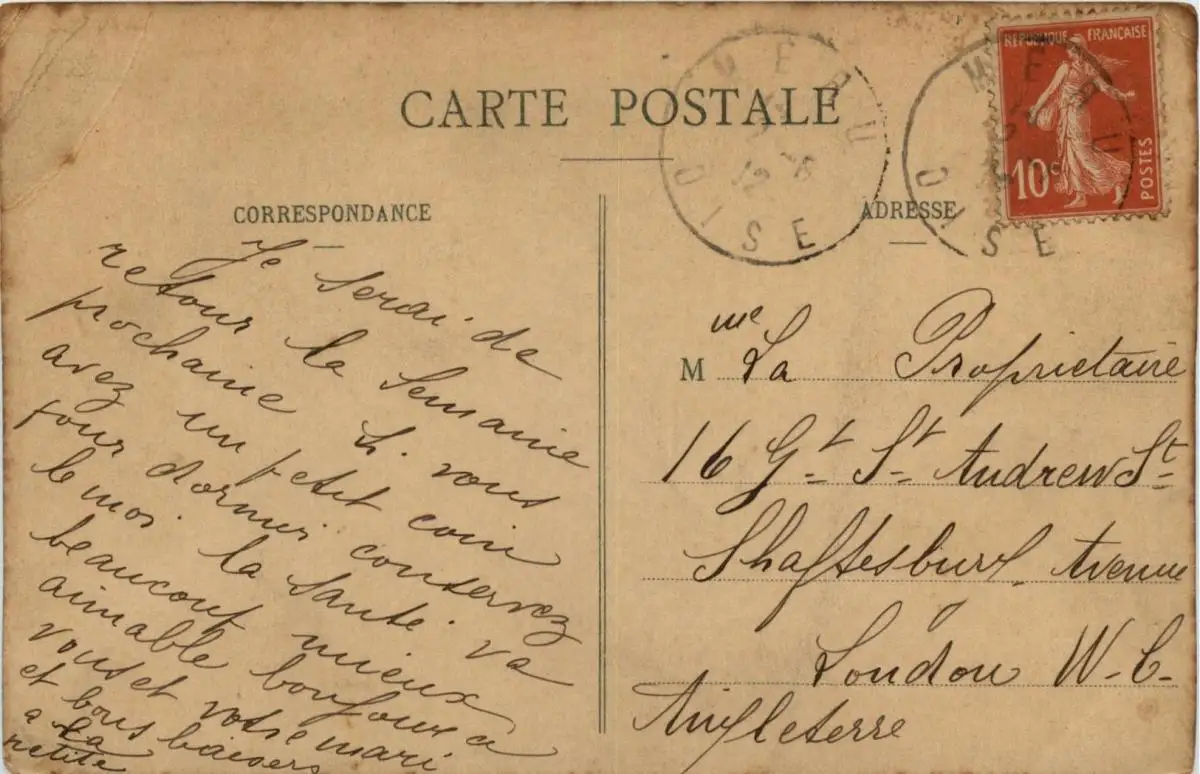 CARTE POSTALE
RÉPUBLIQUE FRANÇAISE
10c
POSTES
MERU
OISE
MERU
OISE
CORRESPONDANCE
Je serai de
retour la semaine
prochaine Si vous
avez un petit coin
pour dormir conservez
le moi. la santé. va
beaucoup mieux
aimable bonjour a
vous et votre mari
et bons baisers
a la
petite
ADRESSE
Mme La Proprietaire
16 Gt St Andrew St
Shaftesbury Avenue
London W-C-
Angleterre